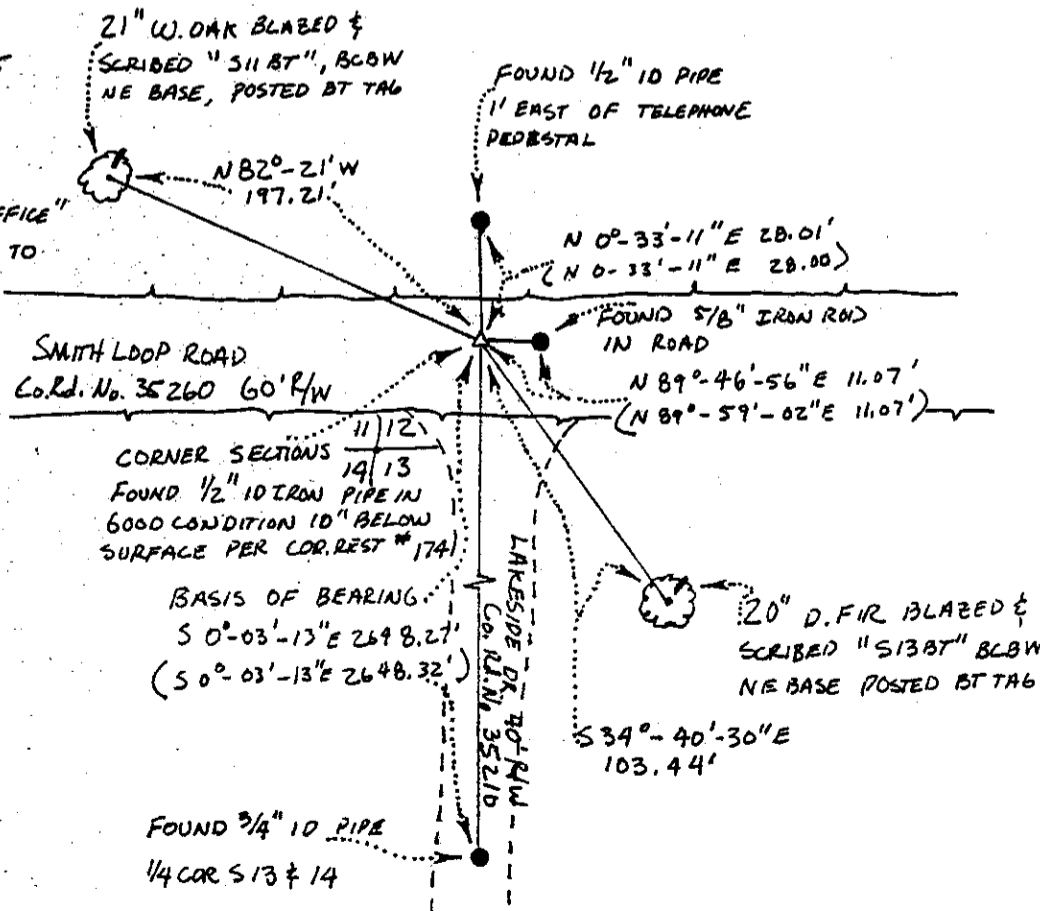 21" W. OAK BLAZED &
SCRIBED "S11 BT", BCBW
NE BASE, POSTED BT TAG
FOUND 1/2" ID PIPE
1' EAST OF TELEPHONE
PEDESTAL
N 82°-21' W
197.21'
FFICE"
TO
N 0°-33'-11" E 28.01'
(N 0-33'-11" E 28.00)
FOUND 5/8" IRON ROD
IN ROAD
SMITH LOOP ROAD
Co.Rd. No. 35260 60' R/W
N 89°-46'-56" E 11.07'
(N 89°-59'-02" E 11.07')
11 | 12
14 | 13
CORNER SECTIONS
FOUND 1/2" ID IRON PIPE IN
GOOD CONDITION 10" BELOW
SURFACE PER COR. REST # 174
BASIS OF BEARING
S 0°-03'-13" E 2648.27'
(S 0°-03'-13" E 2648.32')
LAKESIDE DR 40' R/W
Co. Rd. No 35210
20" D. FIR BLAZED &
SCRIBED "S13BT" BCBW
NE BASE POSTED BT TAG
S 34°-40'-30" E
103.44'
FOUND 3/4" ID PIPE
1/4 COR S 13 & 14